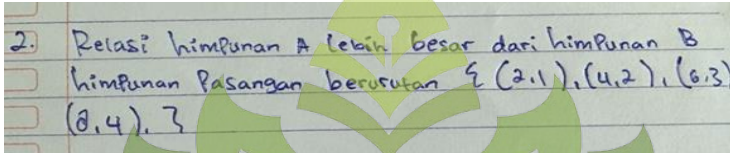 2. Relasi himpunan A lebih besar dari himpunan B
himpunan Pasangan berurutan { (2,1), (4,2), (6,3)
(8,4), }